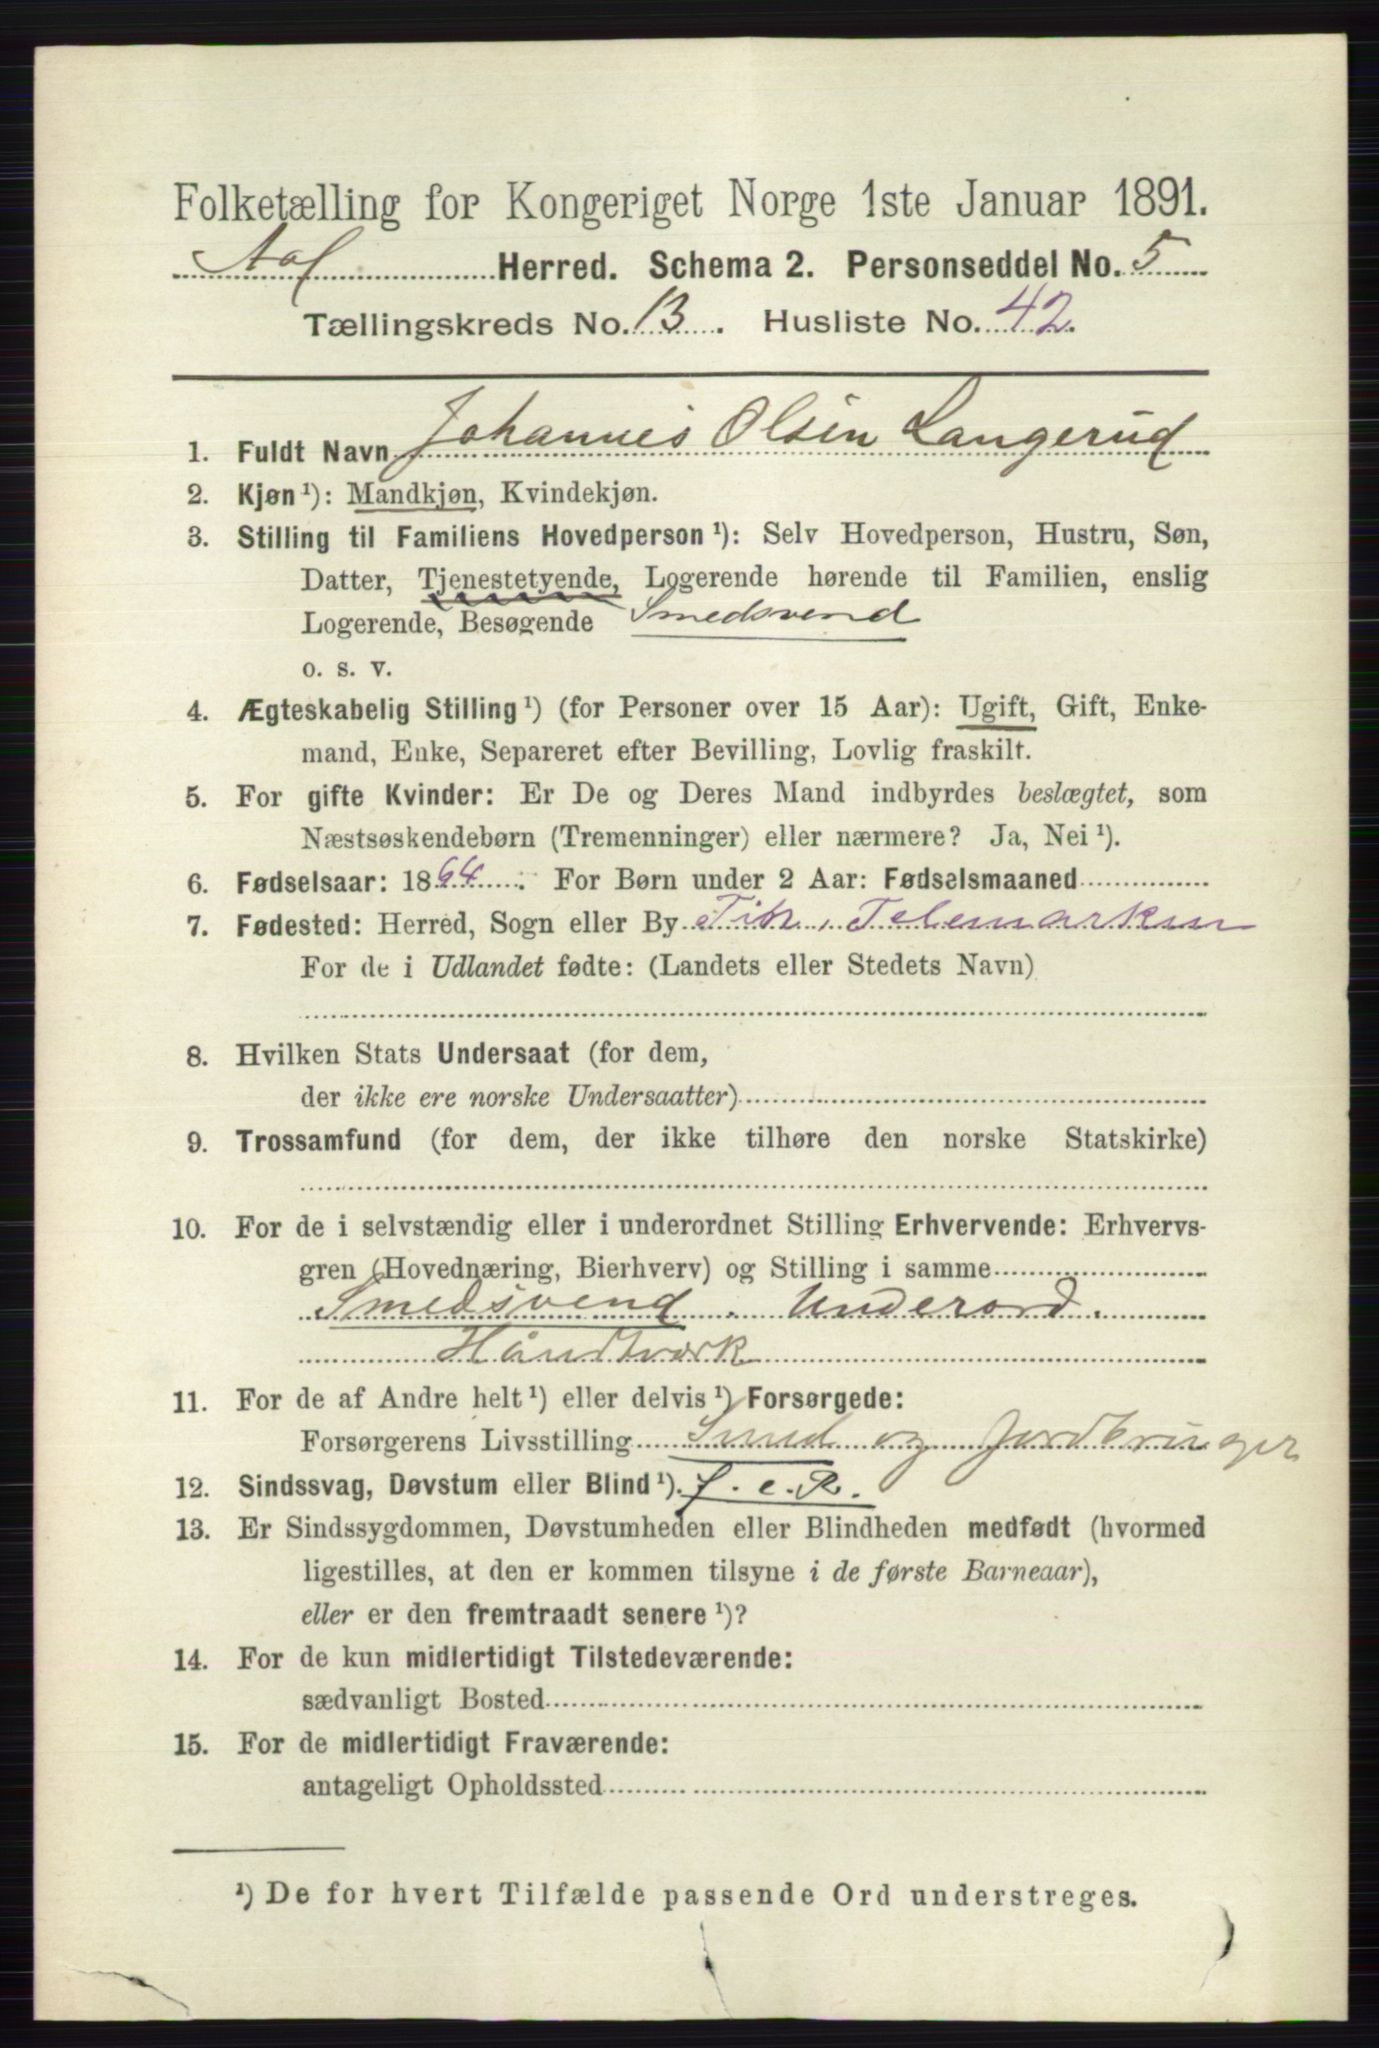 Folketælling for Kongeriget Norge 1ste Januar 1891.
Aal Herred. Schema 2. Personseddel No. 5
Tællingskreds No. 13. Husliste No. 42.
1. Fuldt Navn Johannes Olsen Langerud
2. Kjøn ¹): Mandkjøn, Kvindekjøn.
3. Stilling til Familiens Hovedperson ¹): Selv Hovedperson, Hustru, Søn,
Datter, Tjenestetyende, Logerende hørende til Familien, enslig
Logerende, Besøgende Smedsvend
o. s. v.
4. Ægteskabelig Stilling ¹) (for Personer over 15 Aar): Ugift, Gift, Enke-
mand, Enke, Separeret efter Bevilling, Lovlig fraskilt.
5. For gifte Kvinder: Er De og Deres Mand indbyrdes beslægtet, som
Næstsøskendebørn (Tremenninger) eller nærmere? Ja, Nei ¹).
6. Fødselsaar: 1864. For Børn under 2 Aar: Fødselsmaaned
7. Fødested: Herred, Sogn eller By Tin, Telemarken
For de i Udlandet fødte: (Landets eller Stedets Navn)
8. Hvilken Stats Undersaat (for dem,
der ikke ere norske Undersaatter)
9. Trossamfund (for dem, der ikke tilhøre den norske Statskirke)
10. For de i selvstændig eller i underordnet Stilling Erhvervende: Erhvervs-
gren (Hovednæring, Bierhverv) og Stilling i samme
Smedsvend. Underord.
Håndtværk
11. For de af Andre helt ¹) eller delvis ¹) Forsørgede:
Forsørgerens Livsstilling Smed og Jordbruger
12. Sindssvag, Døvstum eller Blind ¹). f. e. R.
13. Er Sindssygdommen, Døvstumheden eller Blindheden medfødt (hvormed
ligestilles, at den er kommen tilsyne i de første Barneaar),
eller er den fremtraadt senere ¹)?
14. For de kun midlertidigt Tilstedeværende:
sædvanligt Bosted
15. For de midlertidigt Fraværende:
antageligt Opholdssted
¹) De for hvert Tilfælde passende Ord understreges.